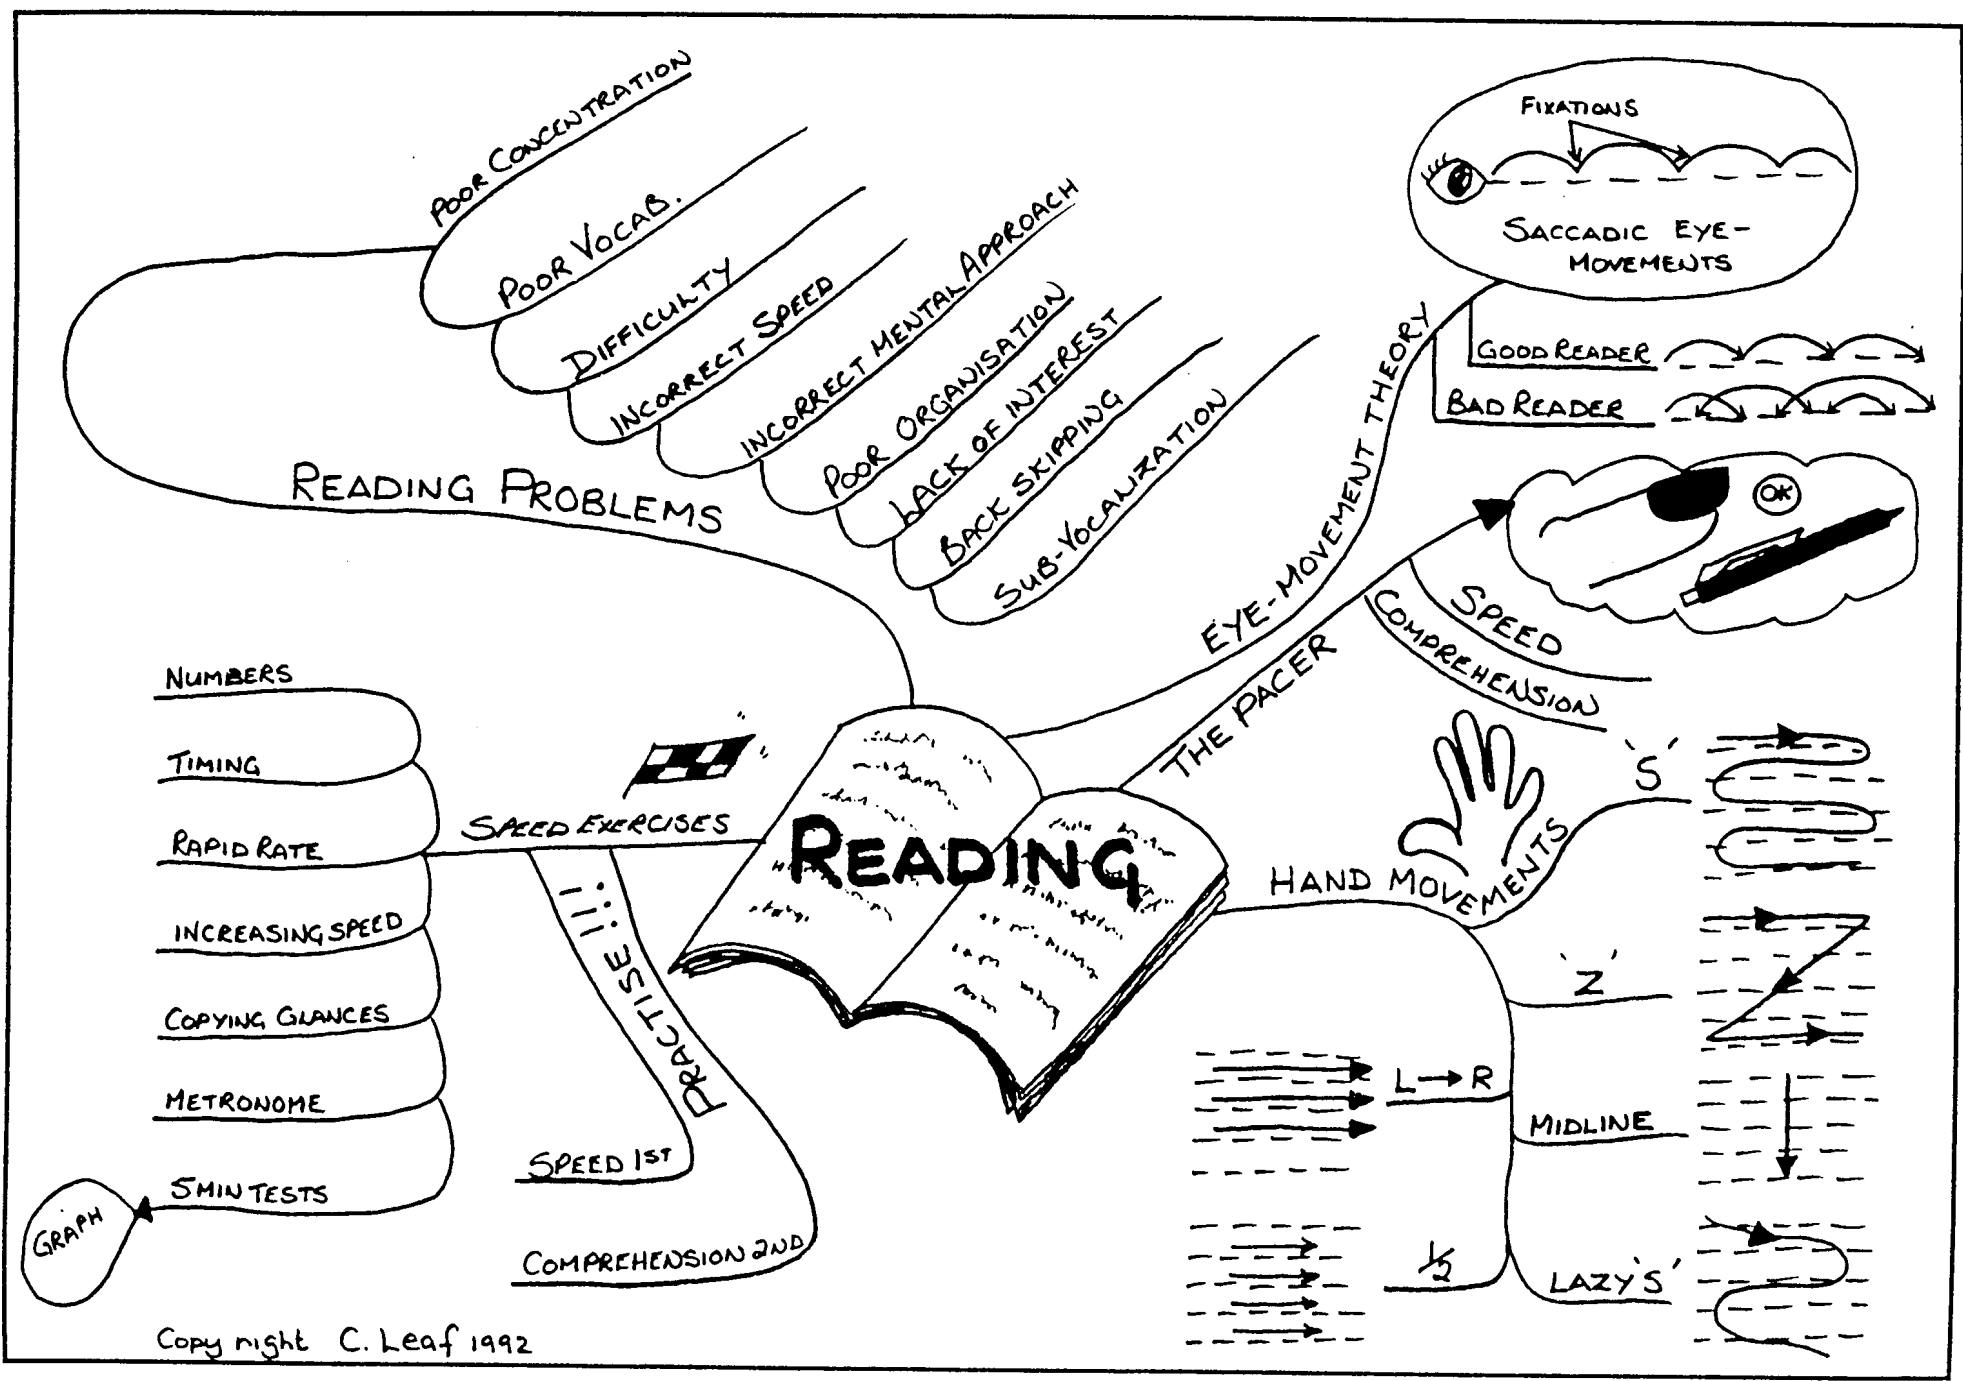 POOR CONCENTRATION
POOR VOCAB.
DIFFICULTY
INCORRECT SPEED
INCORRECT MENTAL APPROACH
POOR ORGANISATION
LACK OF INTEREST
BACK SKIPPING
SUB-VOCALIZATION
READING PROBLEMS
FIXATIONS
SACCADIC EYE-
MOVEMENTS
EYE-MOVEMENT THEORY
GOOD READER
BAD READER
OK
THE PACER
SPEED
COMPREHENSION
READING
HAND MOVEMENTS
'S'
'Z'
L → R
MIDLINE
½
LAZY 'S'
SPEED EXERCISES
NUMBERS
TIMING
RAPID RATE
INCREASING SPEED
COPYING GLANCES
METRONOME
5 MIN TESTS
GRAPH
PRACTISE !!!
SPEED 1ST
COMPREHENSION 2ND
Copy right C. Leaf 1992